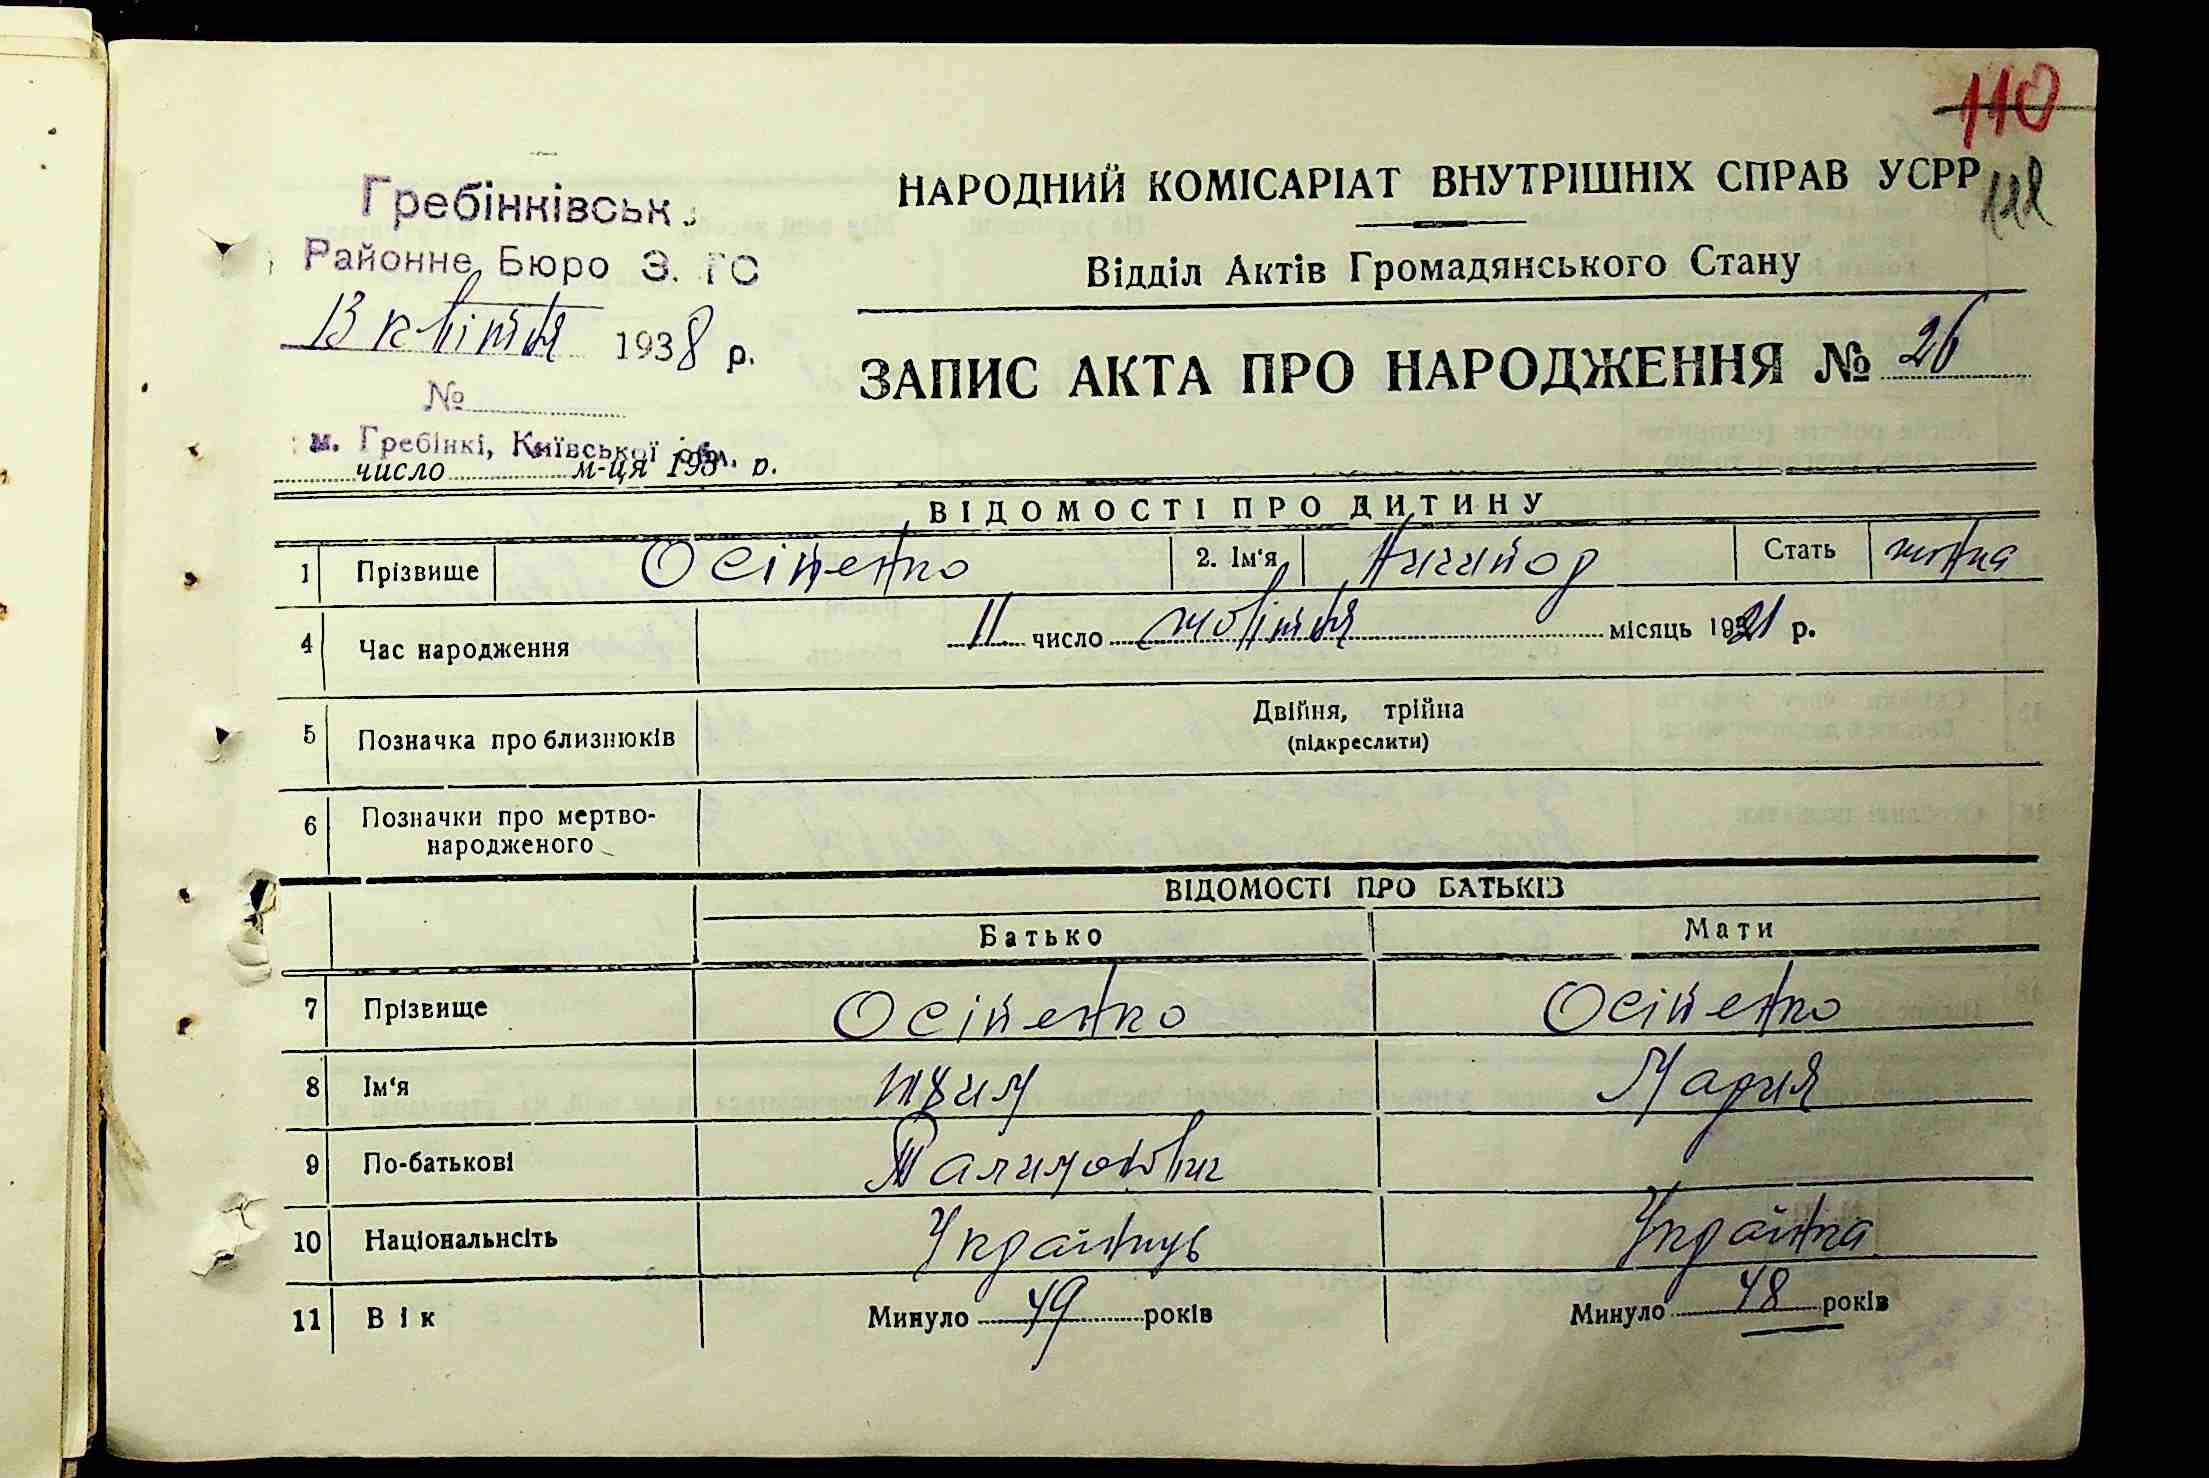 110
122
Гребінківськ.
Районне Бюро З. ГС
13 квітня 1938 р.
№
м. Гребінкі, Київської обл.
число м-ця 193 р.
НАРОДНИЙ КОМІСАРІАТ ВНУТРІШНІХ СПРАВ УСРР
Відділ Актів Громадянського Стану
ЗАПИС АКТА ПРО НАРОДЖЕННЯ № 26
ВІДОМОСТІ ПРО ДИТИНУ
1 Прізвище Осіпенко 2. Ім'я Ничипор Стать
4 Час народження 11 число жовтня місяць 1921 р.
5 Позначка про близнюків Двійня, трійна
(підкреслити)
6 Позначки про мертво-
народженого
ВІДОМОСТІ ПРО БАТЬКІВ
Батько Мати
7 Прізвище Осіпенко Осіпенко
8 Ім'я Мария
9 По-батькові
10 Національність Українець Українка
11 Вік Минуло 49 років Минуло 48 років